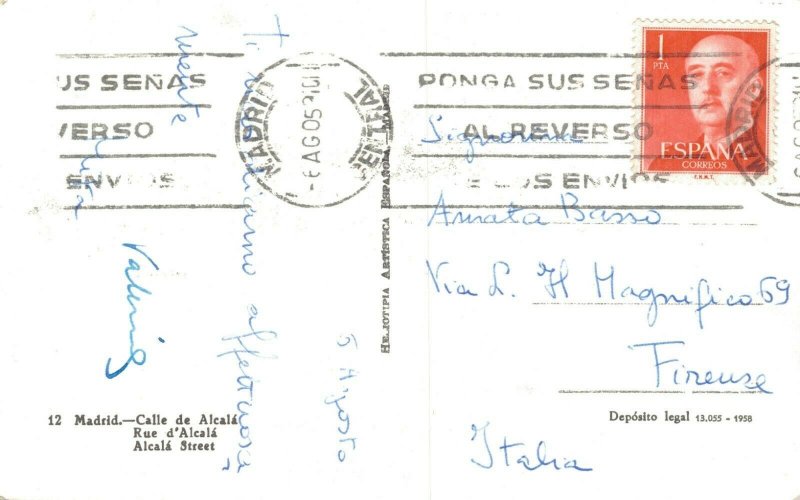 Ti
affettuosa
mente
Valerie
5 Agosto
12 Madrid.—Calle de Alcalá
Rue d'Alcalá
Alcalá Street
HELIOTIPIA ARTÍSTICA ESPAÑOLA, MADRID
US SEÑAS
VERSO
ENVIOS
MADRID
CENTRAL
6 AGO 59
PONGA SUS SEÑAS
AL REVERSO
SUS ENVIOS
1
PTA
ESPAÑA
CORREOS
F.N.M.T.
Signorina
Amata Basso
Via L. Il Magnifico 69
Firenze
Italia
Depósito legal 13.055 - 1958